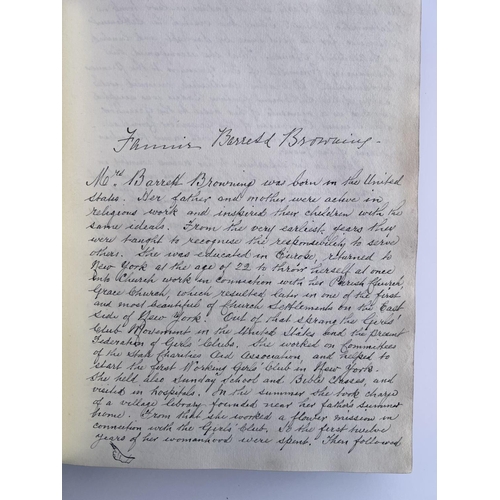 Fannie Barrett Browning -
Mrs. Barrett Browning was born in the United
States. Her father and mother were active in
religious work and inspired their children with the
same ideals. From the very earliest years they
were taught to recognise the responsibility to serve
others. She was educated in Europe, returned to
New York at the age of 22 to throw herself at once
into Church work in connection with her Parish Church,
Grace Church, which resulted later in one of the first
and most beautiful of Church Settlements on the East
Side of New York. Out of that sprang the Girls'
Club Movement in the United States and the present
Federation of Girls Clubs. She worked on Committees
of the State Charities Aid Association, and helped to
start the first Working Girls' Club in New York.
She held also Sunday School and Bible Classes, and
visited in hospitals. In the summer she took charge
of a village library founded near her father's summer
home. From that she worked a flower mission in
connection with the Girls' Club. So the first twelve
years of her womanhood were spent. Then followed